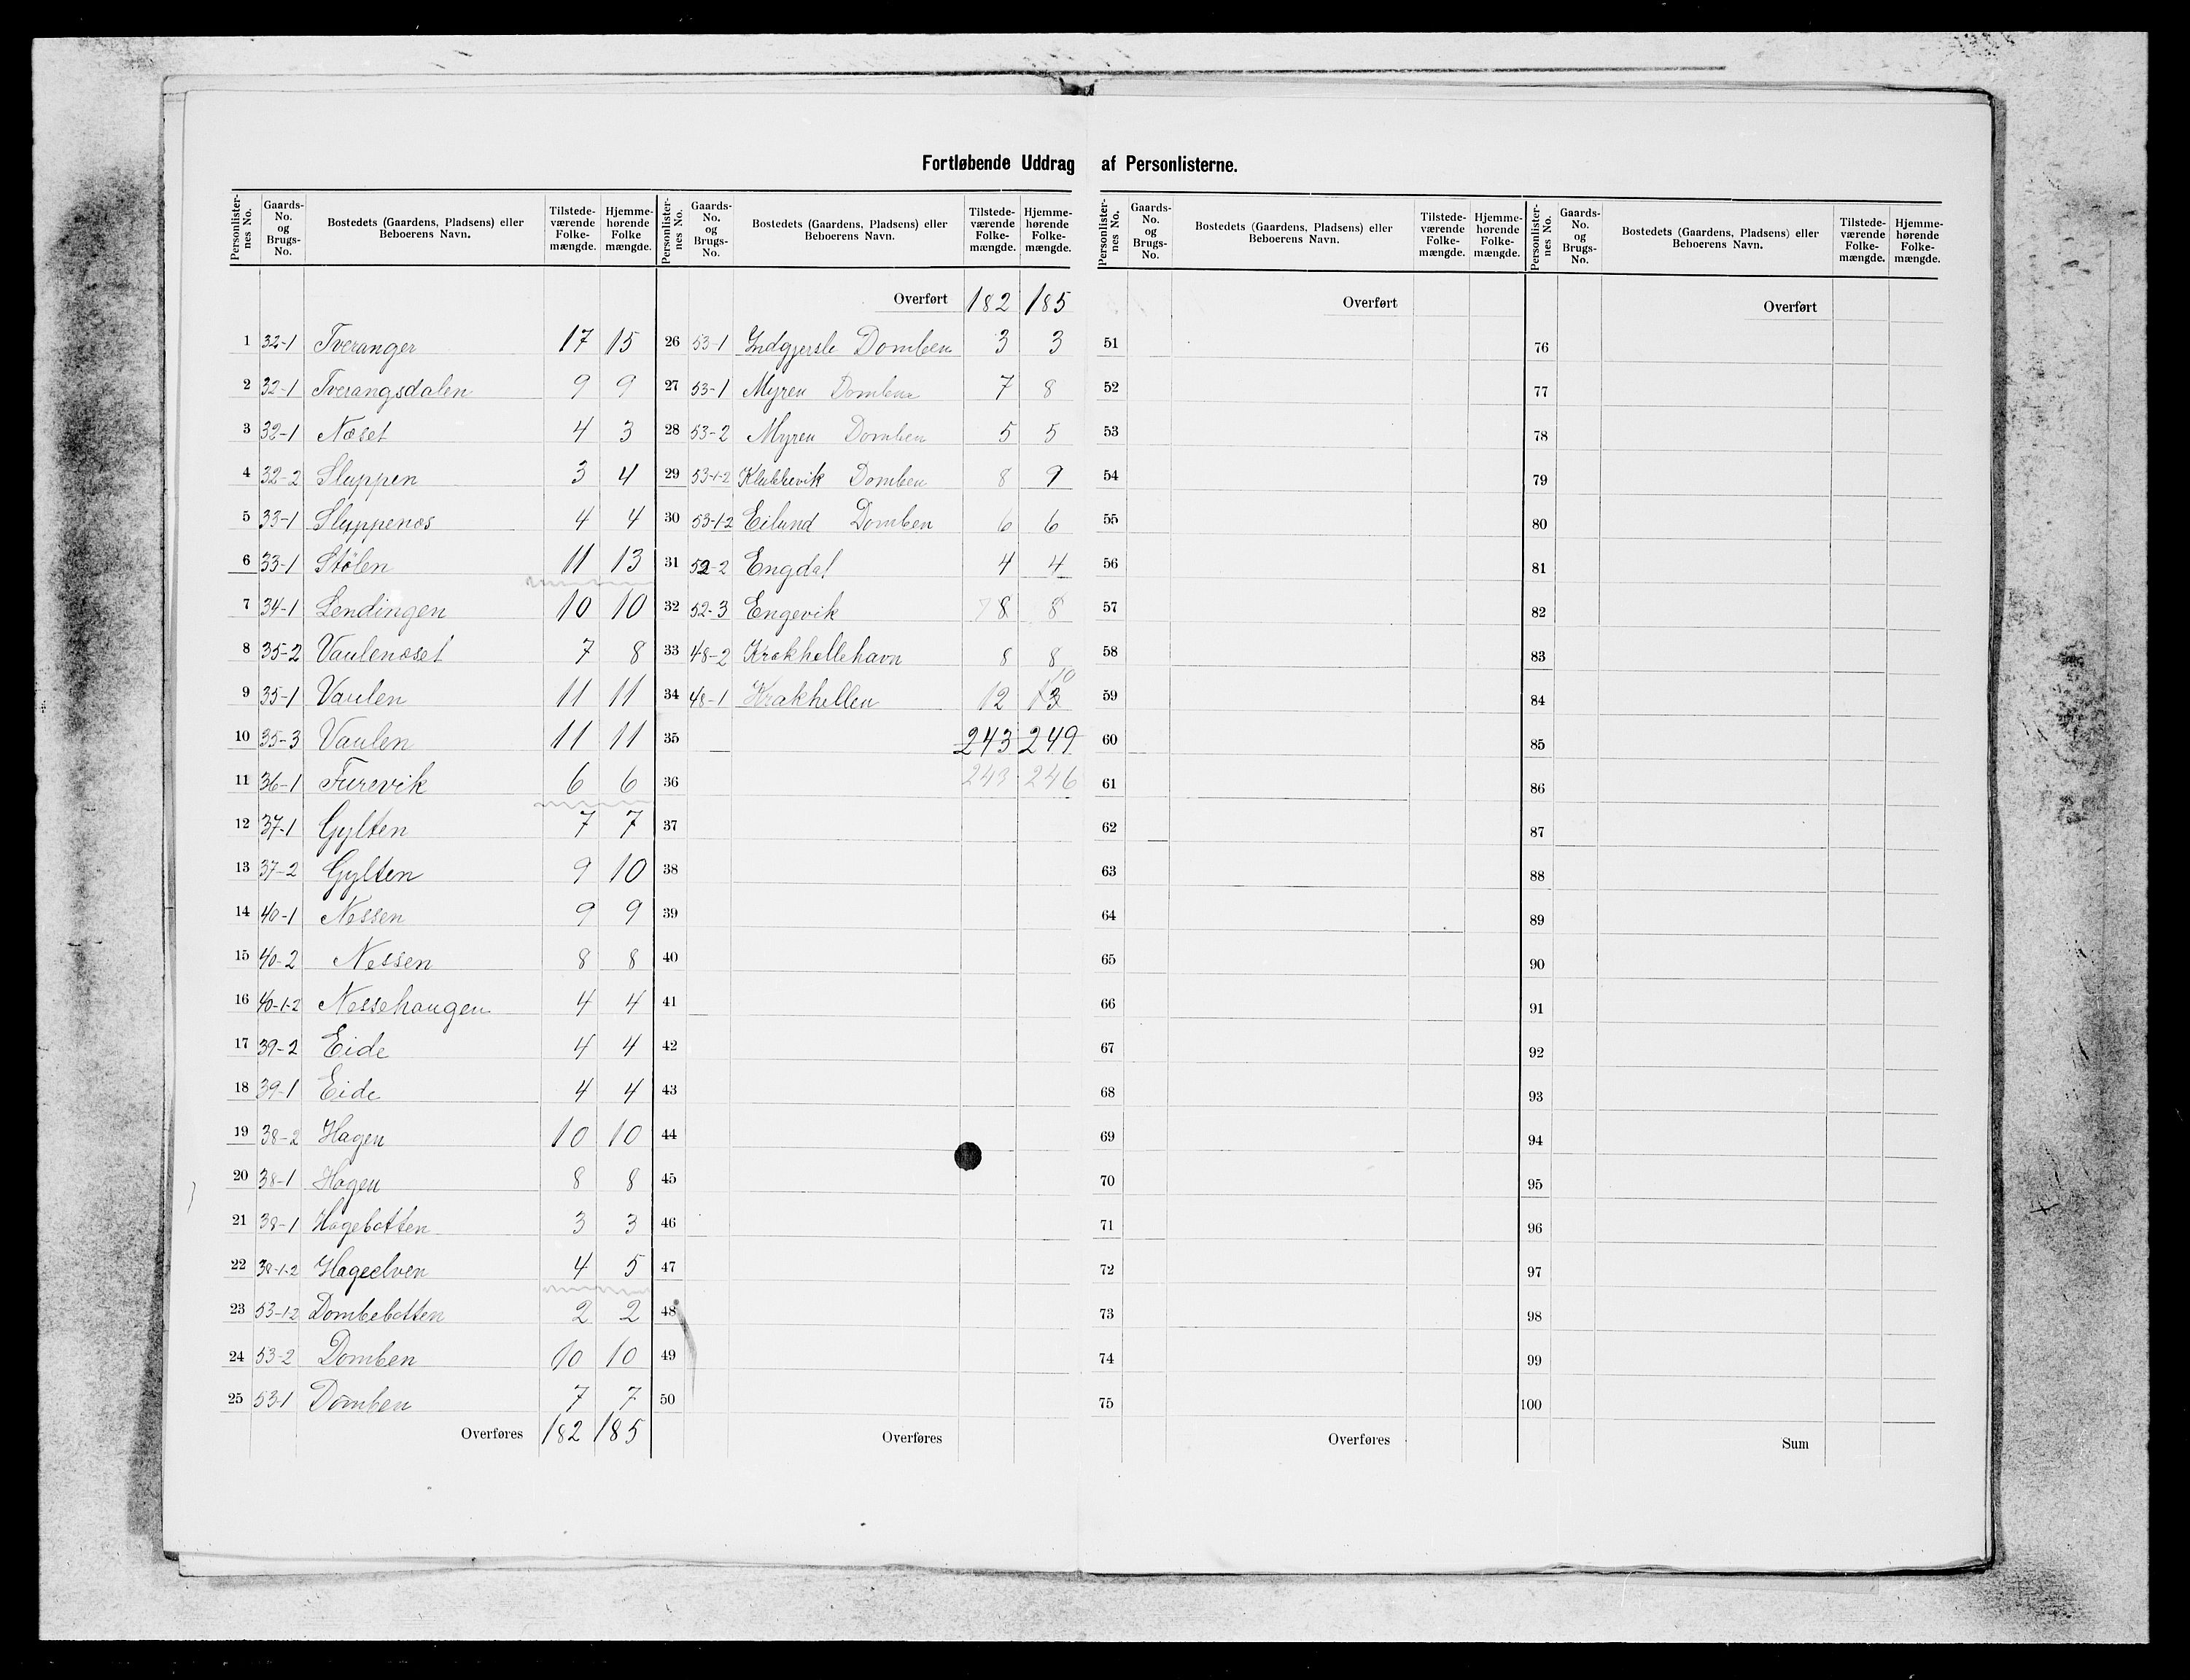 Fortløbende Uddrag af Personlisterne.
Personlisternes No. Gaards-No. og Brugs-No. Bostedets (Gaardens, Pladsens) eller Beboerens Navn. Tilstedeværende Folkemængde. Hjemmehørende Folke mængde.
1 32-1 Tveranger 17 15
2 32-1 Tverangsdalen 9 9
3 32-1 Næset 4 3
4 32-2 Sluppen 3 4
5 33-1 Sluppenæs 4 4
6 33-1 Stølen 11 13
7 34-1 Lendingen 10 10
8 35-2 Vaulenæset 7 8
9 35-1 Vaulen 11 11
10 35-3 Vaulen 11 11
11 36-1 Furevik 6 6
12 37-1 Gylten 7 7
13 37-2 Gylten 9 10
14 40-1 Nessen 9 9
15 40-2 Nessen 8 8
16 40-1-2 Nessehaugen 4 4
17 39-2 Eide 4 4
18 39-1 Eide 4 4
19 38-2 Hagen 10 10
20 38-1 Hagen 8 8
21 38-1 Hagebotten 3 3
22 38-1-2 Hageelven 4 5
23 53-1-2 Dombebotten 2 2
24 53-2 Domben 10 10
25 53-1 Domben 7 7
Overføres 182 185
Personlisternes No. Gaards-No. og Brugs-No. Bostedets (Gaardens, Pladsens) eller Beboerens Navn. Tilstedeværende Folkemængde. Hjemmehørende Folkemængde.
Overført 182 185
26 53-1 Domben 3 3
27 53-1 Myren Domben 7 8
28 53-2 Myren Domben 5 5
29 53-1-2 Klubbevik Domben 8 9
30 53-1-2 Eilund Domben 6 6
31 52-2 Engdal 4 4
32 52-3 Engevik 7 8 8
33 48-2 Krakhellehavn 8 8
10
34 48-1 Krakhellen 12 13
35 243 249
36 243 246
37
38
39
40
41
42
43
44
45
46
47
48
49
50
Overføres
Personlisternes No. Gaards-No. og Brugs-No. Bostedets (Gaardens, Pladsens) eller Beboerens Navn. Tilstedeværende Folkemængde. Hjemmehørende Folkemængde.
Overført
51
52
53
54
55
56
57
58
59
60
61
62
63
64
65
66
67
68
69
70
71
72
73
74
75
Overføres
Personlisternes No. Gaards-No. og Brugs-No. Bostedets (Gaardens, Pladsens) eller Beboerens Navn. Tilstedeværende Folkemængde. Hjemmehørende Folkemængde.
Overført
76
77
78
79
80
81
82
83
84
85
86
87
88
89
90
91
92
93
94
95
96
97
98
99
100
Sum